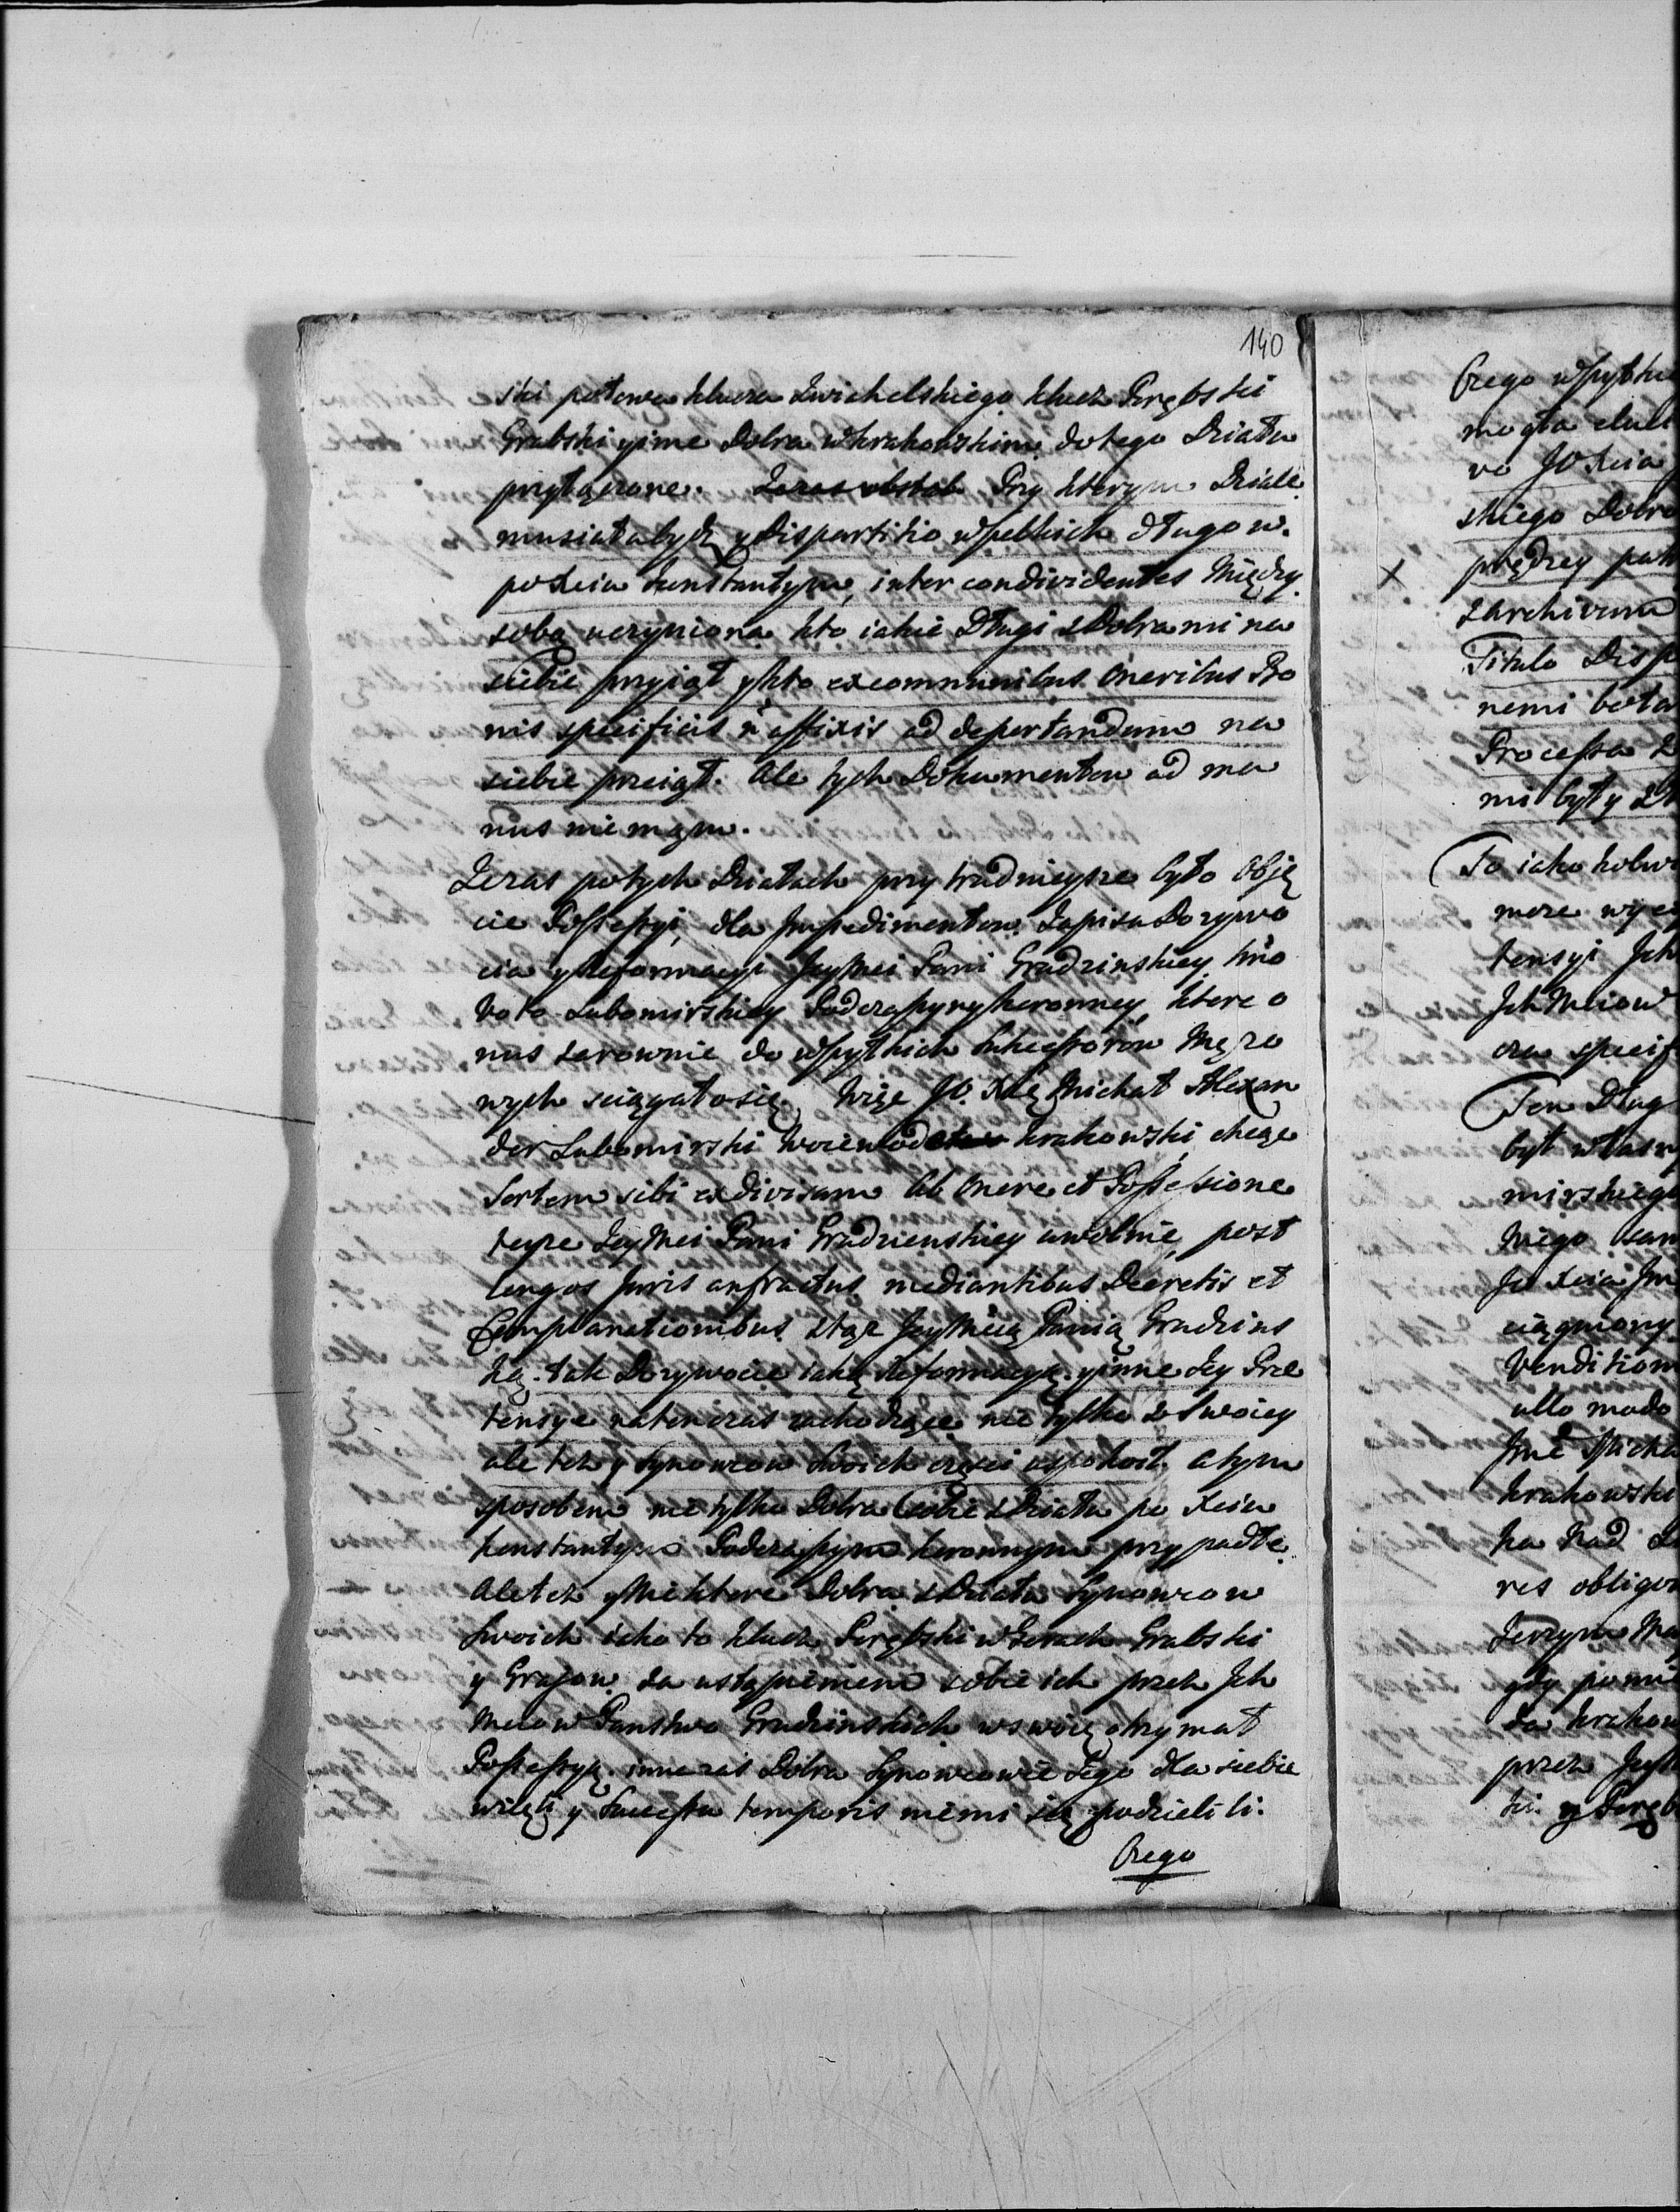 140
ski połowa klucza Zwichelskiego klucz Porębski
Grabski y inne Dobra w krakowskim do tego Działu
przyłączone. Przy którym Dziale
musiała bydź y Dispartitio wszelkich długow
po Xciu Konstantym, inter condividentes Między
sobą uczyniona kto iakie Długi z Dobrami na
siebie przyiął y kto ex communibus Oneribus Bo
nis specificis affixis ad deportandum na
siebie przeiął. Ale tych Dokumentow ad ma
nus nie mąm.
Zeras po tych Działach przy trudnieysze było Obję
cie Possessyi, dla Impedimentow Zapisu Dozywo
cia y Reformacyi JeyMci Pani Grudzinskiey 1mo
Voto Lubomirskiey Podczaszyny koronney, ktore o
nus zarownie do wszytkich Sukcessorow Męzo
wych sciągało się. Więc JO. Xżę Michał Alexan
der Lubomirski Woiewoda krakowski chcąc
Sortem sibi ex divisam ab Onere et Possessione
teyze JeyMci Pani Grudzienskiey uwolnić, post
longos Juris anfractus mediantibus Decretis et
Complanationibus ztąż JeyMcią Panią Grudzins
ką. tak Dozywocie iako Reformacyą y inne Jey Pre
tensye natenczas zachodzące nie tylko z Swoiey
ale też y Synowcow Swoich części uspokoił. A tym
sposobem nie tylko Dobra sobie z Działu po Xciu
Konstantym Podczaszym koronnym przypadłe
Ale też y Niektóre Dobra z Działu Synowcow
Swoich iako to klucz Porębski w Gorach Grabski
y Grajow za ustąpieniem sobie ich przez Ich
Mciow Panstwo Grudzinskich w swoię otrzymał
Possessyą. inne zaś Dobra Synowcowie Jego dla siebie
wzięli y Successu temporis niemi się podzielili.
Czego
Czego wszytkie
mogła
wo JO Xcia
skiego Dobro
X prędzey
z archivum
Titulo Disp
nemi
Processa
mi były
To iako kolwi
moze
tensyi Ich
IchMciow
cza specif
Ten Dług
był własny
mirskiego
Niego
JO Xcia Im
ciągniony
Venditiom
ullo modo
Jmć Micha
krakowski
ka Nad
res obligo
Jerzym Ma
gdy pomi
da krakow
przez Jey
ki y Poręb